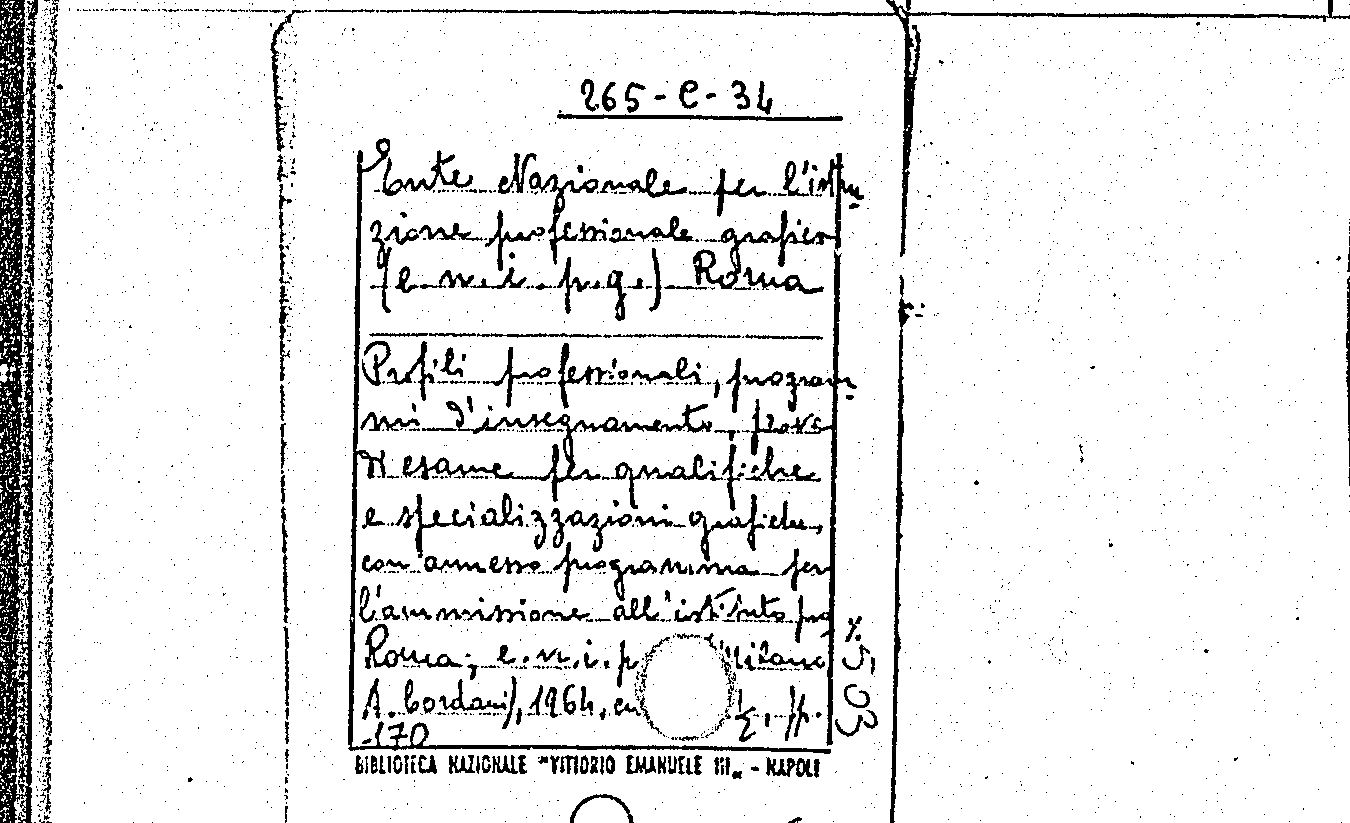 265-C-34
Ente Nazionale per l'istru-
zione professionale grafica
(e.n.i.p.g.) Roma
Profili professionali, program-
mi d'insegnamento, prove
di esame per qualifiche
e specializzazioni grafiche,
con annesso programma per
l'ammissione all'istituto pro
Roma, e.n.i.p. Milano
A. Cordani), 1964, pp.
170
BIBLIOTECA NAZIONALE "VITTORIO EMANUELE III" - NAPOLI